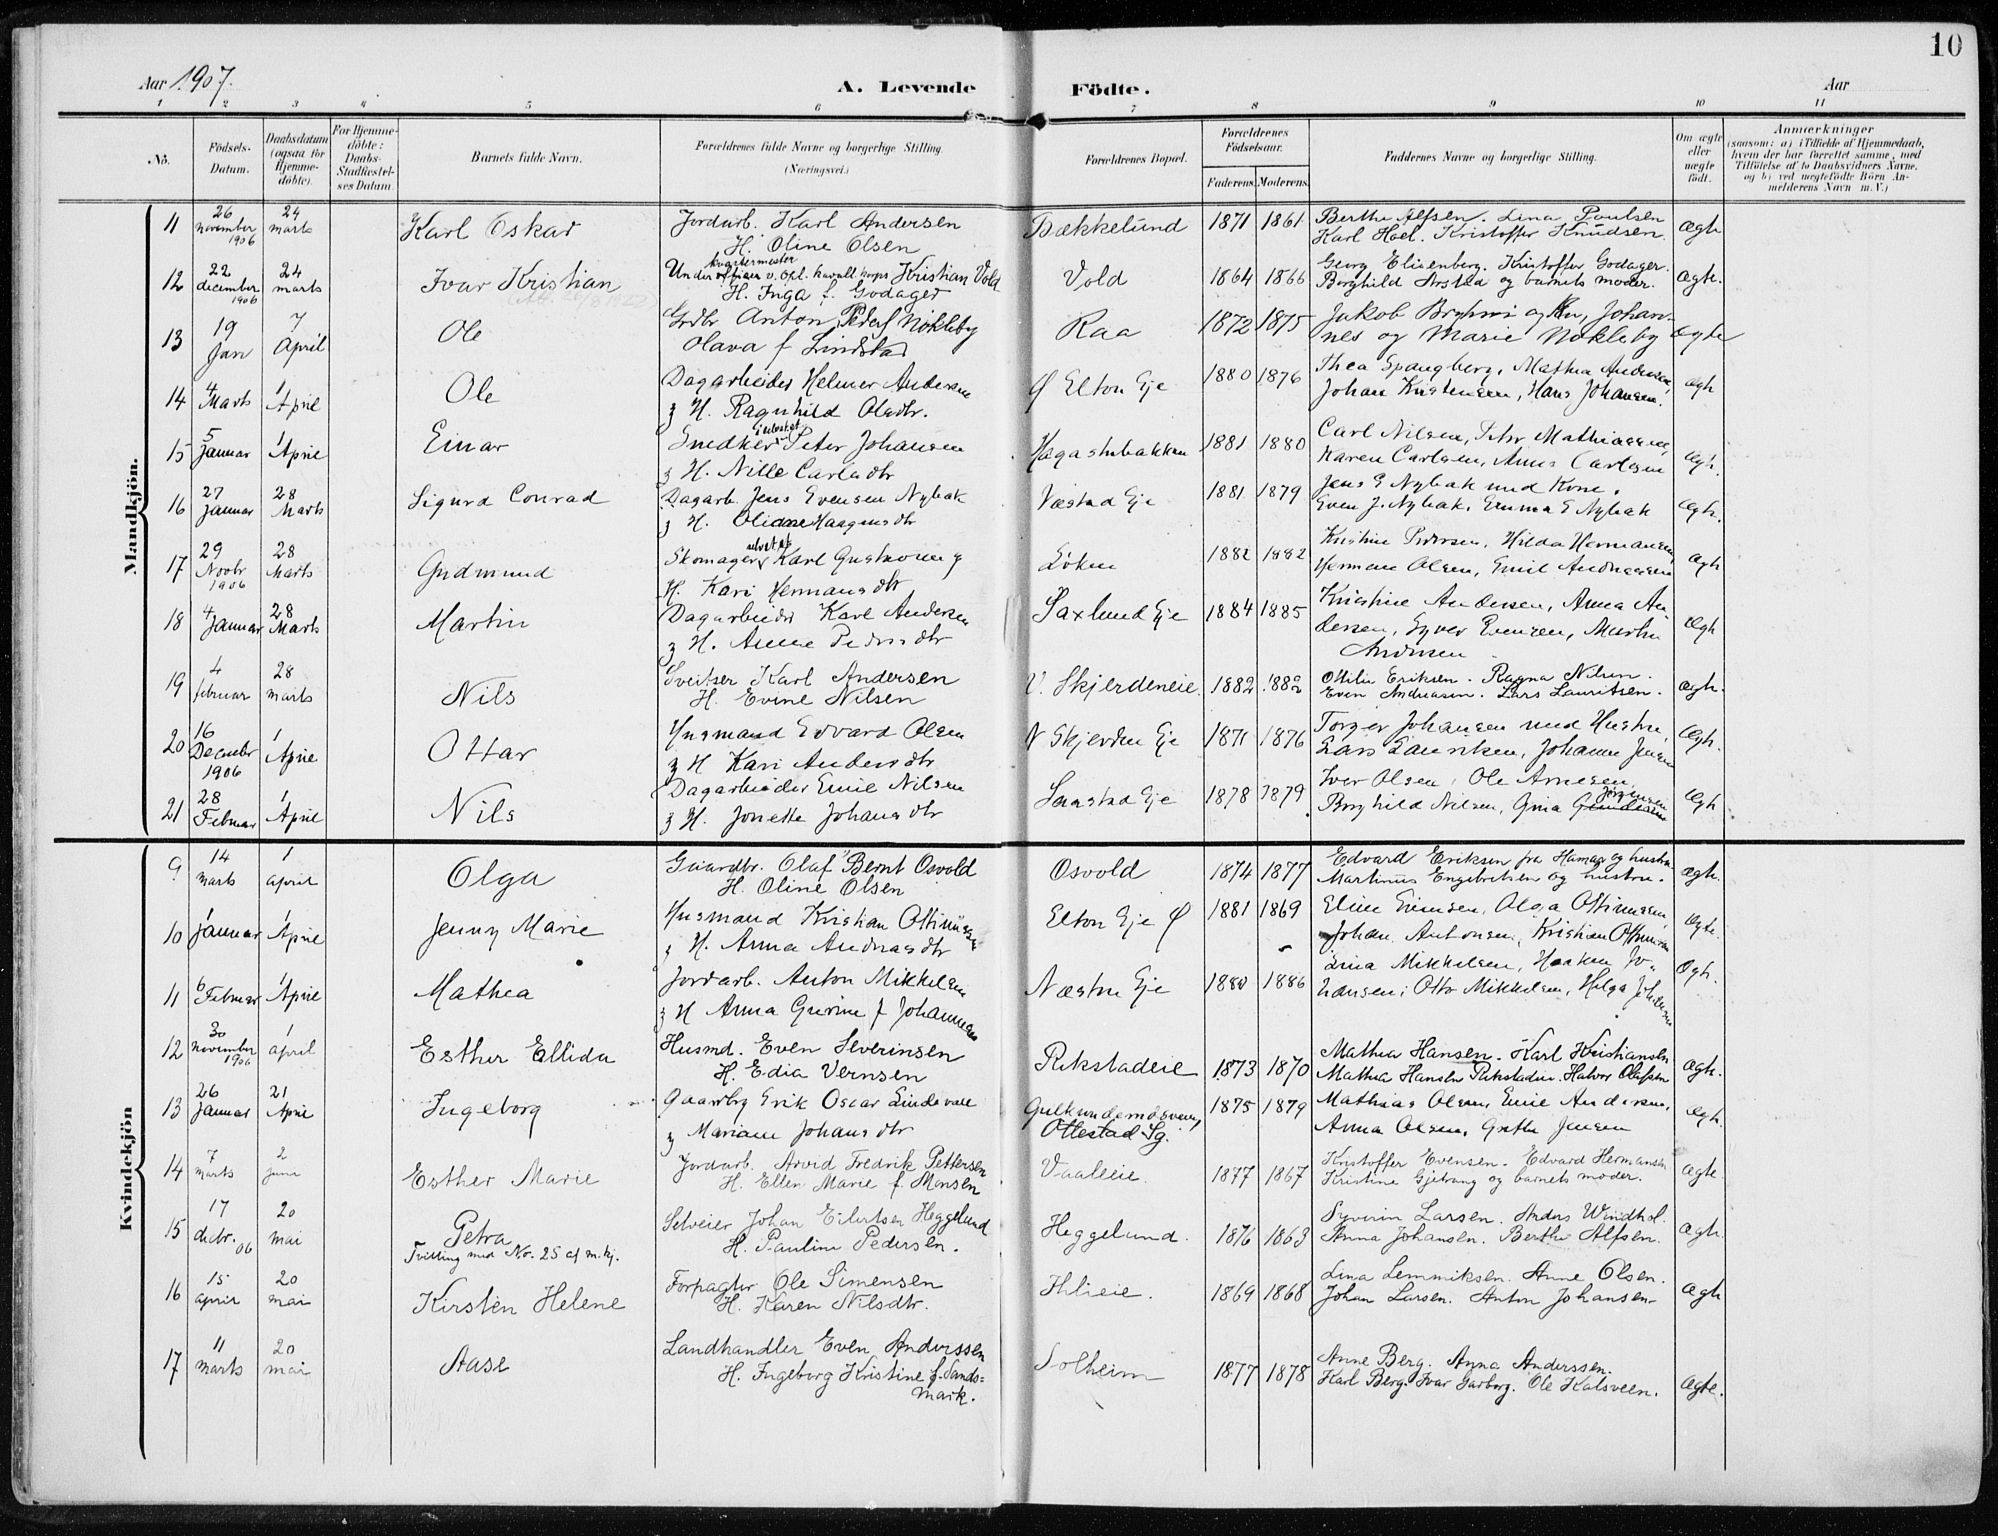 10
Aar 1907.
A. Levende Födte.
Aar
1 2 3 4 5 6 7 8 9 10 11
No.
Födsels-Datum.
Daabsdatum (ogsaa for Hjemmedöbte).
For Hjemmedöbte: Daabs-Stadfæstelses Datum.
Barnets fulde Navn.
Forældrenes fulde Navne og borgerlige Stilling. (Næringsvei.)
Forældrenes Bopæl.
Forældrenes Födselsaar.
Faderens. Moderens.
Faddernes Navne og borgerlige Stilling.
Om ægte eller uægte födt.
Anmærkninger
(saasom: a) i Tilfælde af Hjemmedaab, hvem der har forrettet samme, med Tilföielse af to Daabsvidners Navne, og b) ved uægtefödte Börn Anmelderens Navn m. V.)
Mandkjön.
11 26 november 1906 24 marts Karl Oskar Jordarb. Karl Andersen
H. Oline Olsen Bækkelund 1871 1861 Berthe Alfsen. Lina Poulsen
Karl Hoel. Kristoffer Knudsen. Ægte
12 22 december 1906 24 marts Ivar Kristian Kristian Vold
H. Inga f. Godager Vold 1864 1866 Georg Elisenberg. Kristoffer Godager.
Borghild Arstad og barnets moder. Ægte.
13 19 Jan 7 April Ole Grdbr Anton Peders Nökleby
Olava f Lindstad Raa 1872 1875 Jakob og Johan-
nes og Marie Nökleby Ægte
14 4 Marts 1 April Ole Dagarbeider Helmer Andersen
& H. Ragnhild Olsdtr. Ø Elton Eje 1880 1876 Thea Spangberg, Mathea Andersen,
Johan Kristensen, Hans Johansen. Ægte
15 5 Januar 1 April Einar Snedker Peter Johansen
& H. Nille Carlsdtr 1881 1880 Carl Nilsen, Petr Mathiassen,
Karen Carlsen, Anna Carlsen Ægte.
16 27 Januar 28 Marts Sigurd Conrad Dagarb. Jens Evensen Nybak
& H. Oliane Haagensdtr Næstad Eje 1881 1879 Jens E Nybak med Kone.
Even J. Nybak, Emma E Nybak Ægte.
17 29 Novbr 1906 28 Marts Gudmund Skomager Karl Gustavsen &
H. Kari Hermansdtr Løken 1882 1882 Kristine Pedersen, Hilda Hermansen,
Herman Olsen, Emil Andreassen Ægte
18 4 Januar 28 Marts Martin Dagarbeider Karl Andersen
& H. Anne Pedersdtr Saxlund Eje 1884 1885 Kristine Andersen, Anna An
dersen, Syver Evensen, Martin
Andersen Ægte
19 4 februar 28 marts Nils Sveitser Karl Andersen
H. Evine Nilsen V. Skjerdeneie. 1882 1882 Ottilie Eriksen. Ragna Nilsen.
Even Andreasen. Lars Lauritsen. Ægte.
20 16 Decembr 1906 1 April Ottar Husmand Edvard Olsen
& H Kari Andersdtr N Skjerden Eje 1871 1876 Torger Johansen med Hustru,
Lars Lauritsen, Johanne Jensen Ægte.
21 28 Februar 1 April Nils Dagarbeider Emil Nilsen
& H. Jonette Johansdtr Saastad Eje 1878 1879 Iver Olsen, Ole Arnesen,
Borghild Nilsen, Gina Jörgensen Ægte
Kvindekjön
9 14 marts 1 april Olga Gaardbr. Olaf Bernt Osvold
H. Oline Olsen Osvold 1874 1877 Edvard Eriksen fra Hamar og hustru
Martinus Engebretsen og hustru. Ægte.
10 1 Januar 1 April Jenny Marie Husmand Kristian Ottinusen
& H. Anna Andreasdtr Elton Eje Ø 1881 1869 Eline Evensen, Olga Ottinusen,
Johan Antonsen, Kristian Ottinusen Ægte.
11 6 Februar 1 April Mathea Jordarb. Anton Mikkelsen
& H Anna Gurine f Johannesen Næstne Eje 1880 1886 Lina Mikkelsen, Haaken Jo-
hansen, Otto Mikkelsen, Helga Johansen Ægte.
12 30 November 1906 1 april Esther Ellida Husmd. Even Severinsen
H. Edia Vernsen Rikstadeie 1873 1870 Mathea Hansen. Karl Kristiansen
Mathea Hansen Rikstadeie. Halvor Olafsen Ægte.
13 26 Januar 21 April Ingeborg Gaardbr Erik Oscar Lindevall
& Mariane Johansdtr
Ottestad Sg. 1875 1879 Mathias Olsen, Emil Andersen,
Anna Olsen, Grethe Jensen Ægte.
14 7 marts 2 juni Esther Marie Jordarb. Arvid Fredrik Pettersen
H. Ellen Marie f. Monsen Vaaleeie. 1877 1867 Kristoffer Evensen. Edvard Hermansen
Kristine Gjetvang og barnets moder. Ægte
15 17 decbr. 06 20 mai Petra
Tvilling med No. 25 af m.kj. Selveier Johan Eilertsen Heggelund
H. Pauline Pedersen. Heggelund. 1876 1863 Syverin Larsen. Anders Windhol.
Anna Johansen. Berthe Alfsen. Ægte
16 15 april 20 mai Kirsten Helene Forpagter Ole Simensen
H. Karen Nilsdtr. Ihlieie. 1869 1868 Lina Lemmiksen. Anne Olsen.
Johan Larsen. Anton Johansen. Ægte
17 11 marts 20 mai Aase Landhandler Even Anderssen
H. Ingeborg Kristine f. Sands=
mark. Solheim 1877 1878 Anne Berg. Anna Anderssen.
Karl Berg. Ivar Garborg. Ole Kalsveen. Ægte.